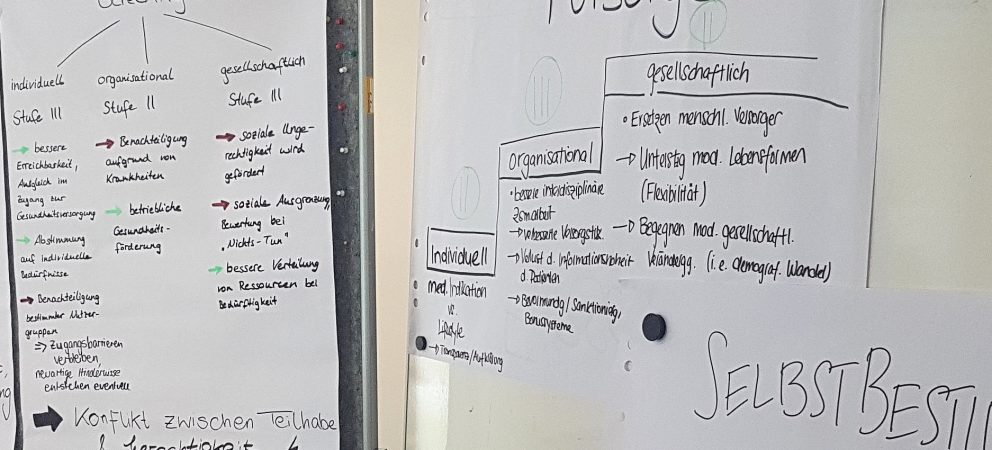 individuell
Stufe III
→ bessere
Erreichbarkeit,
Ausgleich im
Zugang zur
Gesundheitsversorgung
→ Abstimmung
auf individuelle
Bedürfnisse
→ Benachteiligung
bestimmter Nutzer-
gruppen
⇒ Zugangsbarrieren
verbleiben,
neuartige Hindernisse
entstehen eventuell
organisational
Stufe II
→ Benachteiligung
aufgrund von
Krankheiten
→ betriebliche
Gesundheits-
förderung
gesellschaftlich
Stufe III
→ soziale Unge-
rechtigkeit wird
gefördert
→ soziale Ausgrenzung,
Bewertung bei
„Nichts-Tun"
→ bessere Verteilung
von Ressourcen bei
Bedürftigkeit
➡ Konflikt zwischen Teilhabe
Individuell
med. Indikation
vs.
Lifestyle
→ Transparenz/Aufklärung
organisational
• bessere interdisziplinäre
→ Verlust d. Informationshoheit
d. Patienten
Bonussysteme
gesellschaftlich
• Ersetzen menschl. Versorger
→ mod. Lebensformen
(Flexibilität)
→ Begegnen mod. gesellschaftl.
(i.e. demograf. Wandel)
SELBSTBESTI